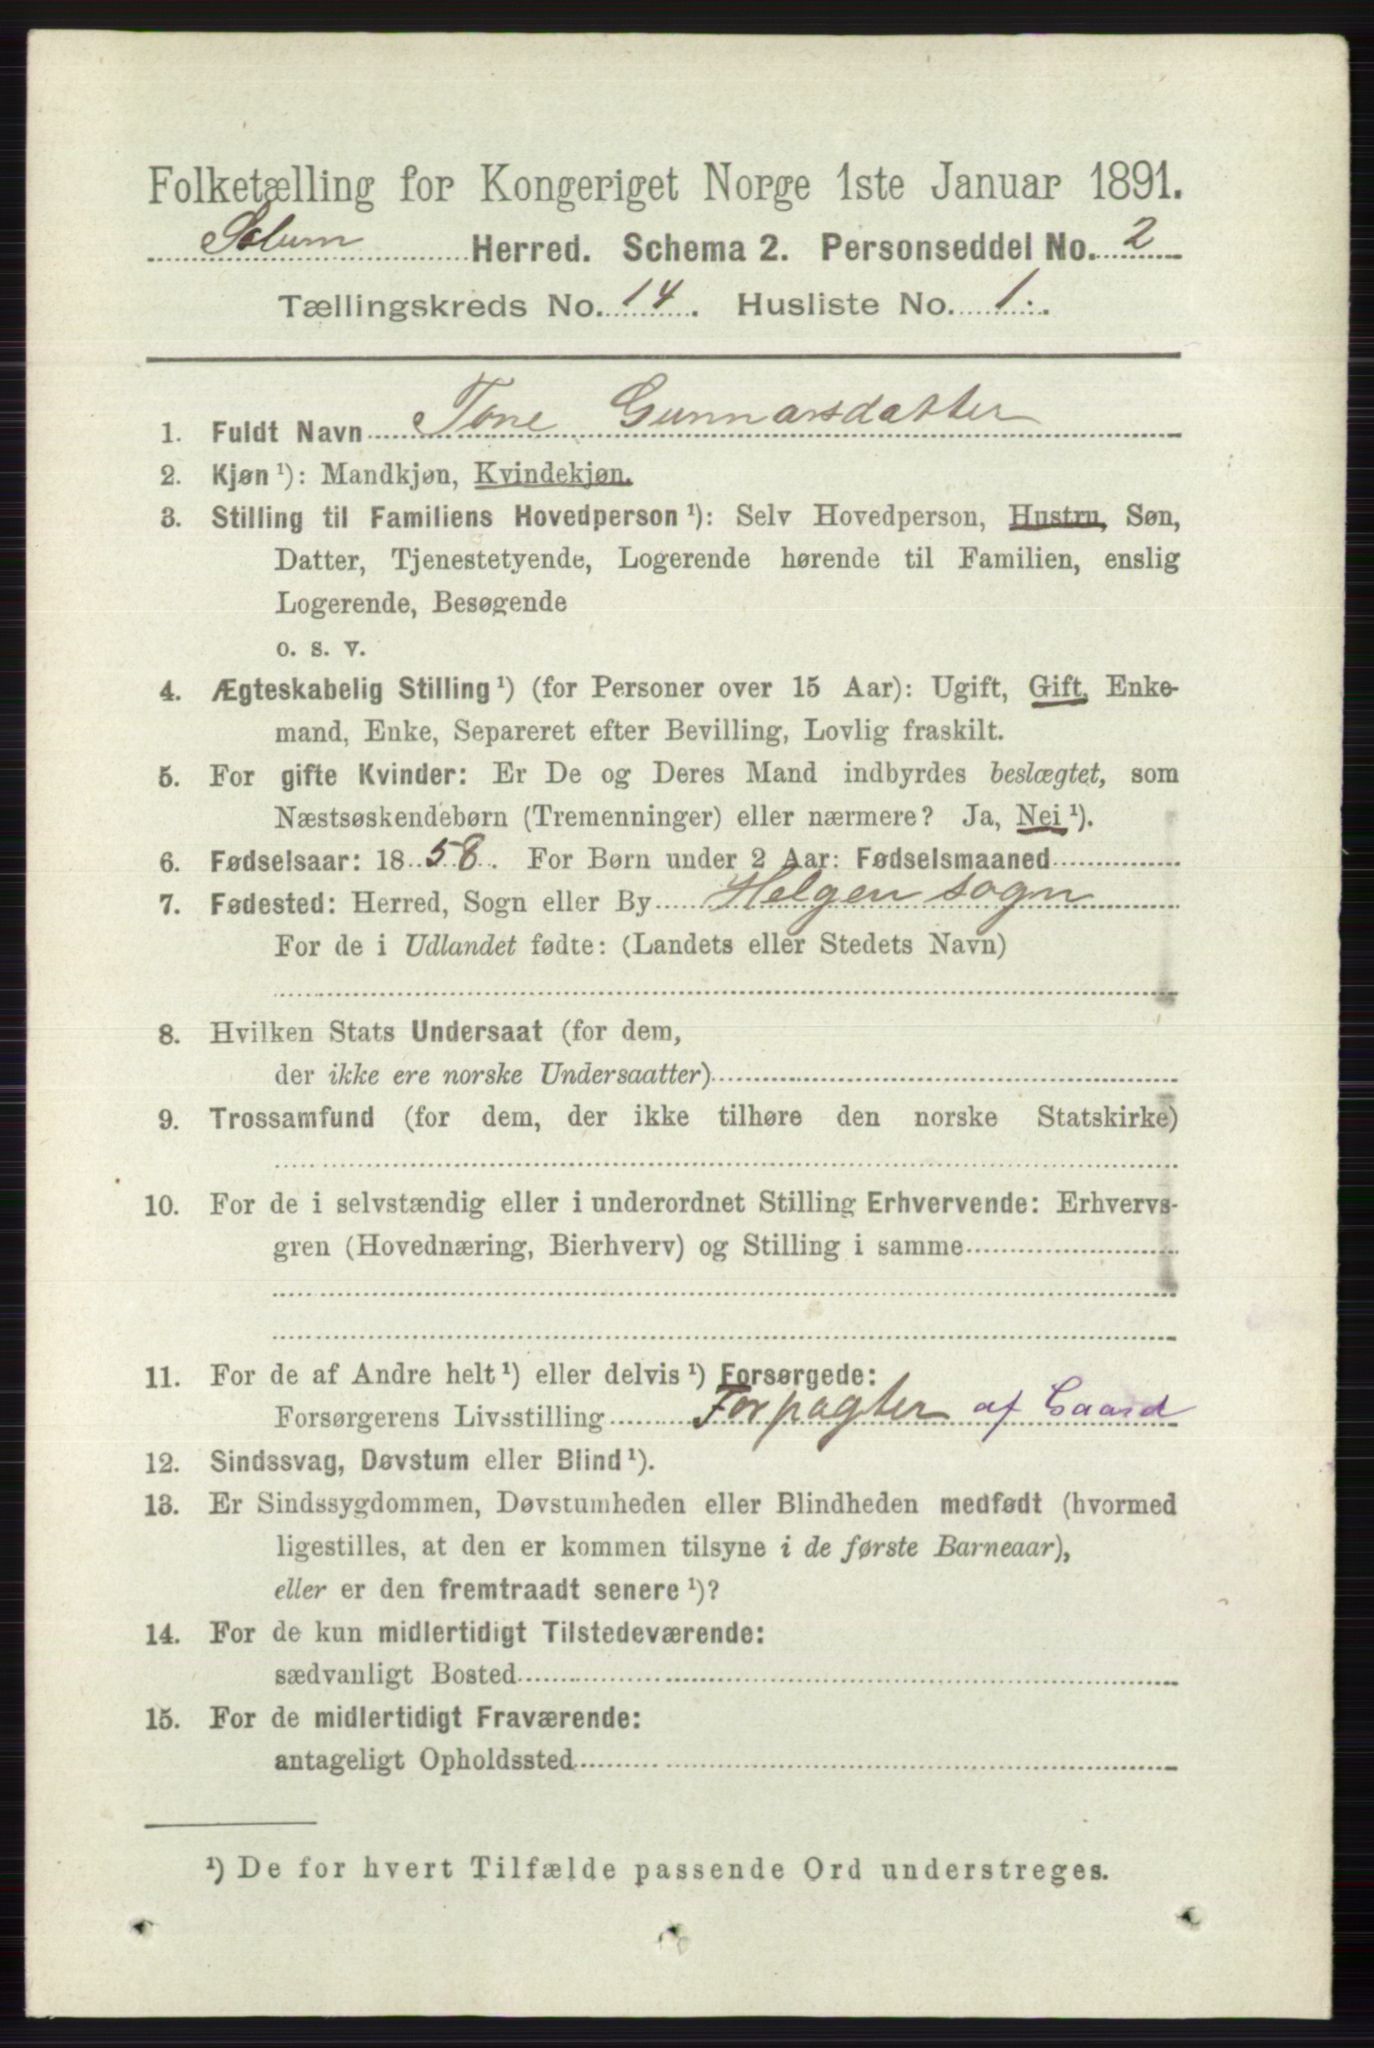 Folketælling for Kongeriget Norge 1ste Januar 1891.
Solum Herred. Schema 2. Personseddel No. 2
Tællingskreds No. 14. Husliste No. 1.
1. Fuldt Navn Tone Gunnarsdatter
2. Kjøn ¹): Mandkjøn, Kvindekjøn.
3. Stilling til Familiens Hovedperson ¹): Selv Hovedperson, Hustru, Søn,
Datter, Tjenestetyende, Logerende hørende til Familien, enslig
Logerende, Besøgende
o. s. v.
4. Ægteskabelig Stilling ¹) (for Personer over 15 Aar): Ugift, Gift, Enke-
mand, Enke, Separeret efter Bevilling, Lovlig fraskilt.
5. For gifte Kvinder: Er De og Deres Mand indbyrdes beslægtet, som
Næstsøskendebørn (Tremenninger) eller nærmere? Ja, Nei ¹).
6. Fødselsaar: 1858. For Børn under 2 Aar: Fødselsmaaned
7. Fødested: Herred, Sogn eller By Helgen sogn
For de i Udlandet fødte: (Landets eller Stedets Navn)
8. Hvilken Stats Undersaat (for dem,
der ikke ere norske Undersaatter)
9. Trossamfund (for dem, der ikke tilhøre den norske Statskirke)
10. For de i selvstændig eller i underordnet Stilling Erhvervende: Erhvervs-
gren (Hovednæring, Bierhverv) og Stilling i samme
11. For de af Andre helt ¹) eller delvis ¹) Forsørgede:
Forsørgerens Livsstilling Forpagter af Gaard
12. Sindssvag, Døvstum eller Blind ¹).
13. Er Sindssygdommen, Døvstumheden eller Blindheden medfødt (hvormed
ligestilles, at den er kommen tilsyne i de første Barneaar),
eller er den fremtraadt senere ¹)?
14. For de kun midlertidigt Tilstedeværende:
sædvanligt Bosted
15. For de midlertidigt Fraværende:
antageligt Opholdssted
¹) De for hvert Tilfælde passende Ord understreges.